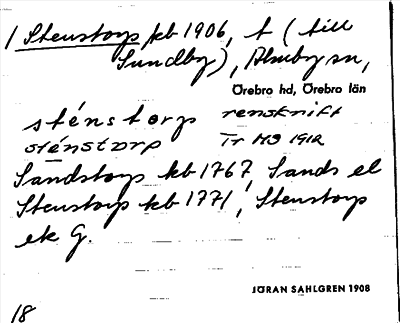 1 Stenstorp kb 1906, t (till
Sundby), Almby sn,
Örebro hd, Örebro län
sténstorp renskrift
sténstorp Tr HS 1912
Sandstorp kb 1767 Sands el
Stenstorp kb 1771, Stenstorp
ek G.
JÖRAN SAHLGREN 1908
18